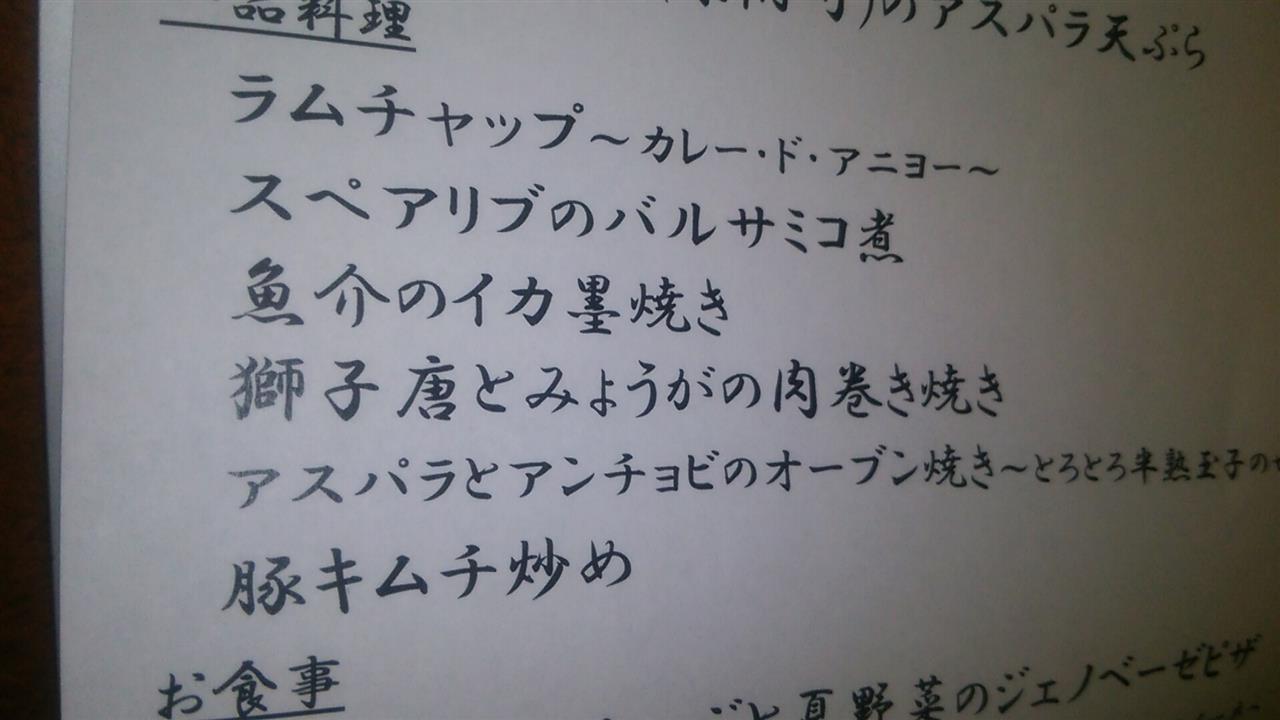 のアスパラ天ぷら
品料理
ラムチャップ～カレー・ド・アニョー～
スペアリブのバルサミコ煮
魚介のイカ墨焼き
獅子唐とみょうがの肉巻き焼き
アスパラとアンチョビのオーブン焼き～とろとろ半熟玉子の
豚キムチ炒め
お食事
と夏野菜のジェノベーゼピザ